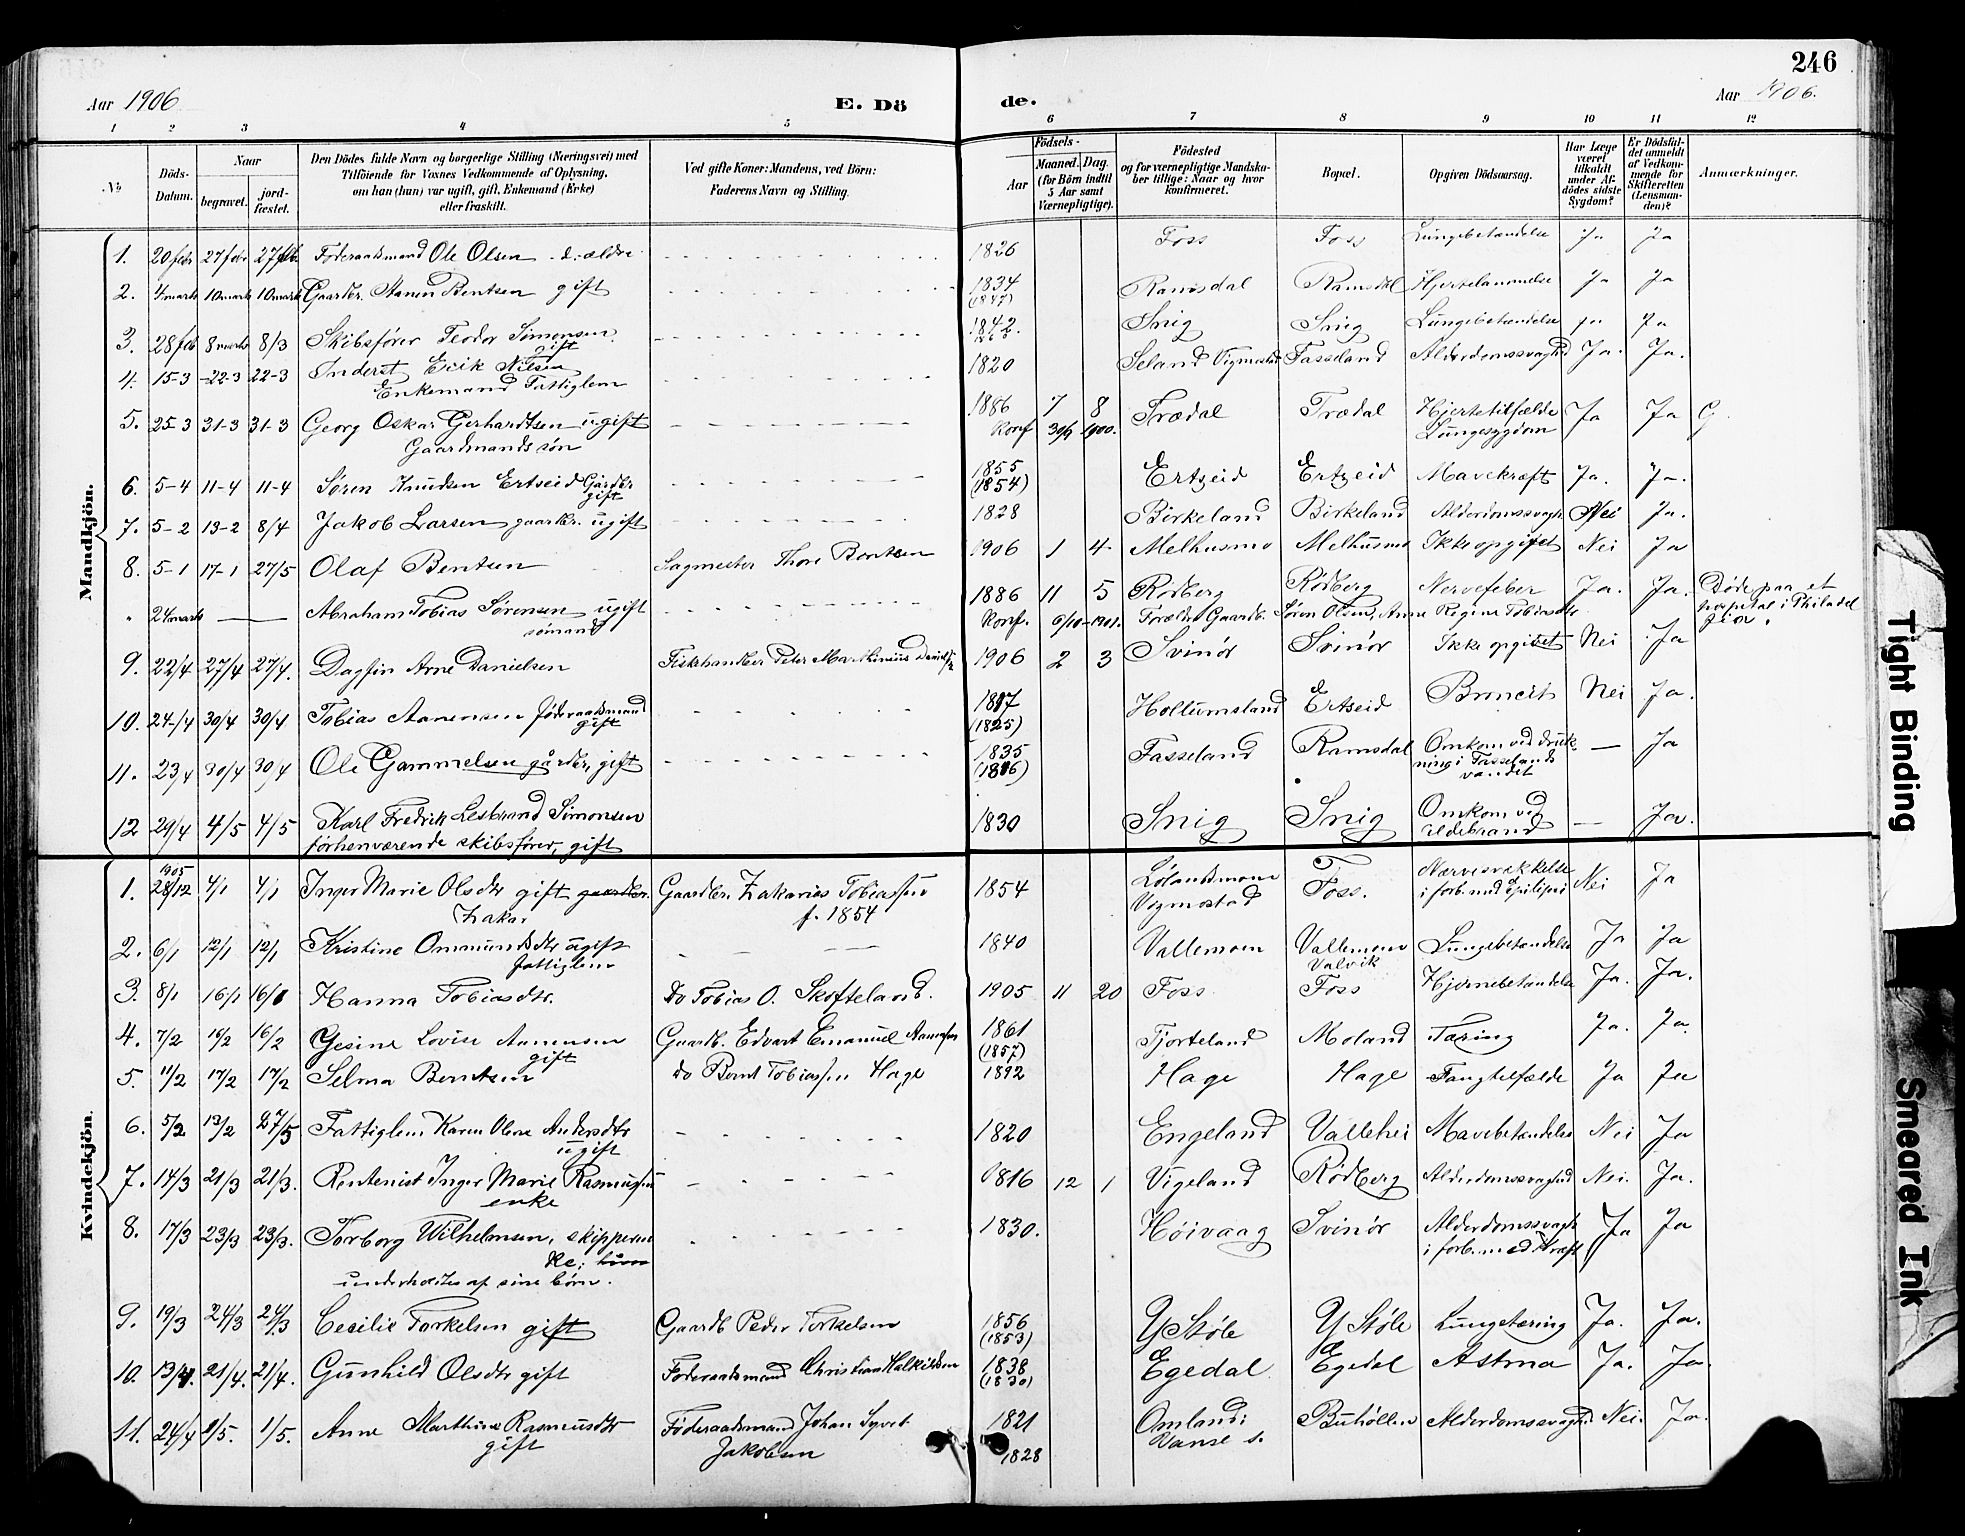 246
Aar 1906 E. Dö de. Aar 1906.
1 2 3 4 5 6 7 8 9 10 11 12
No Döds-Datum. Naar begravet. jord-fæstet. Den Dödes fulde Navn og borgerlige Stilling (Næringsvei) med Tilföiende for Voxnes Vedkommende af Oplysning, om han (hun) var ugift, gift, Enkemand (Enke) eller fraskilt. Ved gifte Koner: Mandens, ved Börn: Faderens Navn og Stilling. Födsels- Aar Maaned. Dag. (for Börn indtil 5 Aar samt Værnepligtige). Födested og for værnepligtige Mandskaber tillige: Naar og hvor konfirmeret. Bopæl. Opgiven Dödsaarsag. Har Læge været tilkaldt under Afdödes sidste Sygdom? Er Dödsfaldet anmeldt af Vedkommende for Skifteretten (Lensmanden)? Anmærkninger.
Mandkjön.
1. 20 febr 27 febr 27 feb. Föderaadsmand Ole Olsen d. ældre 1826 Foss Foss Lungebetændelse Ja Ja
2. 4 marts 10 marts 10 marts Gaardbr. Aanen Bentsen gift 1834 Ramsdal Ramsdal Hjertelammelse Ja Ja
(1847)
3. 28 feb 8 marts 8/3 Skibsfører Teodor Simonsen 1842. Snig Snig Lungebetændelse Ja Ja
gift
4. 15-3 22-3 22-3 Inderst Erik Nilsen 1820 Seland Vigmostad Fasseland Alderdomssvaghed Ja. Ja.
Enkemand Fattiglem
5. 25-3 31-3 31-3 Georg Oskar Gerhardtsen ugift 1886 7 8 Trædal Trædal Hjertetilfælde Ja Ja G.
Gaardmandssøn Konf 30/9 1900. Lungesygdom
6. 5-4 11-4 11-4 Søren Knudsen Ertseid Gårdbr 1855 Ertzeid Ertzeid Mavekræft Ja. Ja.
gift (1854)
7. 5-2 13-2 8/4 Jakob Larsen gaardbr. ugift 1828 Birkeland Birkeland Alderdomssvagh Nei Ja.
8. 5-1 17-1 27/5 Olaf Bentsen Sagmester Thore Bentsen 1906 1 4 Melhusmo Melhusmo Ikke opgivet Nei Ja
" 24 marts — Abraham Tobias Sørensen ugift 1886 11 5 Rødberg Rødberg Nervefeber Ja. Ja. Døde paa et
sømand Konf. 6/10-1901. Foræld. Gaardb. Søren Olsen, Anne Regine Tobiasdtr. hospital i Philadel
fia.
9. 22/4 27/4 27/4. Dagfin Arne Danielsen Fiskehandler Peter Marthinius 1906 2 3 Svinör Svinör Ikke opgivet Nei Ja
10. 24/4 30/4 30/4 Tobias Aanensen föderaadsmand 1817 Hollumsland Ertseid Broncit Nei Ja.
gift (1825)
11. 23/4 30/4 30/4 Ole Gammelsen gårdbr, gift 1835 Fasseland Ramsdal Omkom ved druk- — Ja
ning i Fasselands
vandet
12 29/4 4/5 4/5 Karl Fredrik Simonsen 1830 Snig Snig Omkom ved — Ja.
forhenværende skibsfører, gift ildebrand
Kvindekjön.
1905
1. 28/12 4/1 4/1 Inger Marie Olsdtr gift gaardbr. Gaardbr. Zakarias Tobiassen 1854 Foss. Nervesvækkelse Nei Ja
Zakar f. 1854 Vigmostad i forb. med Epilepsi
2. 6/1 12/1 12/1 Kristine Ommundsdtr ugift 1840 Vallemoen Vallemoen Lungebetændelse Ja Ja
fattiglem Valvik
3. 8/1 16/1 16/1 Hanna Tobiasdtr. Do Tobias O. Skofteland. 1905 11 20 Foss Foss Hjernebetændelse Ja. Ja.
4. 7/2 16/2 16/2 Gesine Lovise Aanensen Gaardb. Edvart Emanuel Aanensen 1861 Fjorteland Moland Tæring Ja. Ja.
gift (1857)
5. 11/2 17/2 17/2 Selma Bentsen do Bernt Tobiassen Hage 1892 Hage Hage Tangtilfælde Ja Ja
6. 5/2 13/2 27/5 Fattiglem Karen Olene Andersdtr 1820 Engeland Vallehei Mavebetændelse Nei Ja
ugift
7. 14/3 21/3 21/3. Rentenist Inger Marie Rasmussen 1816 12 1 Vigeland Rødberg Alderdomssvaghed Nei. Ja.
enke
8. 17/3 23/3 23/3. Torborg Wilhelmsen, skipperen 1830. Høivaag Svinör Alderdomssvagh Ja Ja
ke; i forb. med Kræft
underholdes af sine børn.
9. 19/3 24/3 24/3 Cecilie Torkelsen gift Gaardb Peder Torkelsen 1856 Y Støle Y Støle Lungetæring Ja. Ja.
(1853)
10. 13/4. 21/4. 21/4. Gunhild Olsdtr gift Föderaadsmand Christian Halkildsen 1838 Egedal Egedal Astma Ja. Ja.
(1830)
11. 24/4 1/5. 1/5. Anne Marthine Rasmusdtr Föderaadsmand Johan Syvert 1821 Omland: Buhöllen Alderdomssvaghed Nei. Ja.
gift Jakobsen 1828 Vanse s.
Tight Binding
Smeared Ink